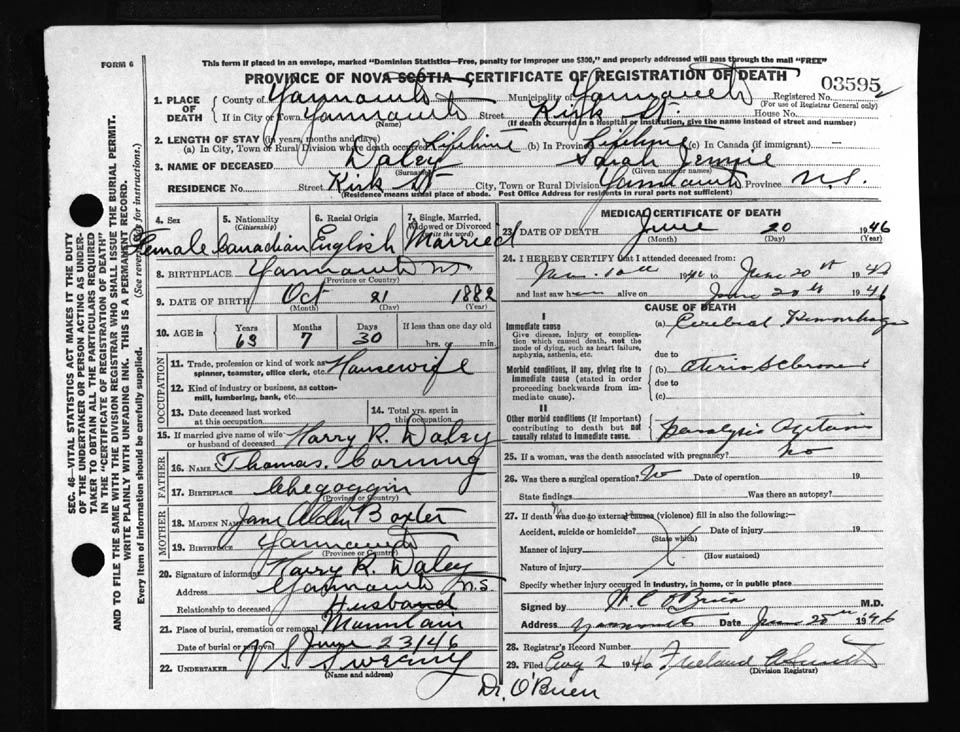 FORM 6
This form if placed in an envelope, marked "Dominion Statistics—Free, penalty for improper use $300," and properly addressed will pass through the mail "FREE"
PROVINCE OF NOVA SCOTIA—CERTIFICATE OF REGISTRATION OF DEATH
03595
1. PLACE OF DEATH { County of Yarmouth Municipality of Yarmouth Registered No.
(For use of Registrar General only)
If in City or Town Yarmouth Street Kirk St House No.
(Name) (If death occurred in a Hospital or institution, give the name instead of street and number)
2. LENGTH OF STAY (in years, months and days)
(a) In City, Town or Rural Division where death occurred Lifetime (b) In Province Lifetime (c) In Canada (if immigrant) —
3. NAME OF DECEASED Daley Sarah Jennie
(Surname) (Given name or names)
RESIDENCE No. Street Kirk St City, Town or Rural Division Yarmouth Province N.S.
(Residence means usual place of abode. Post Office Address for residents in rural parts not sufficient)
4. Sex Female
5. Nationality (Citizenship) Canadian
6. Racial Origin English
7. Single, Married, Widowed or Divorced (write the word) Married
8. BIRTHPLACE Yarmouth N.S.
(Province or Country)
9. DATE OF BIRTH Oct 21 1882
(Month) (Day) (Year)
10. AGE in { Years 63 Months 7 Days 30 If less than one day old hrs. or min.
OCCUPATION
11. Trade, profession or kind of work as spinner, teamster, office clerk, etc. Housewife
12. Kind of industry or business, as cotton-mill, lumbering, bank, etc.
13. Date deceased last worked at this occupation
14. Total yrs. spent in this occupation
15. If married give name of wife or husband of deceased Harry R. Daley
FATHER
16. NAME Thomas. Corning
17. BIRTHPLACE Chegoggin
(Province or Country)
MOTHER
18. MAIDEN NAME Jane Alden Baxter
19. BIRTHPLACE Yarmouth
(Province or Country)
20. Signature of informant Harry R. Daley
Address Yarmouth N.S.
Relationship to deceased Husband
21. Place of burial, cremation or removal Mountain
Date of burial or removal June 23/46
22. UNDERTAKER V S Sweeny
(Name and address)
MEDICAL CERTIFICATE OF DEATH
23. DATE OF DEATH June 20 1946
(Month) (Day) (Year)
24. I HEREBY CERTIFY that I attended deceased from:
19 to June 20th 1946
and last saw her alive on June 20th 1946
CAUSE OF DEATH
I
Immediate cause
Give disease, injury or complication which caused death, not the mode of dying, such as heart failure, asphyxia, asthenia, etc.
(a) Cerebral Hemorrhage
due to
Morbid conditions, if any, giving rise to immediate cause (stated in order proceeding backwards from immediate cause).
(b)
due to
(c)
II
Other morbid conditions (if important) contributing to death but not causally related to immediate cause.
Paralysis Agitans
25. If a woman, was the death associated with pregnancy? no
26. Was there a surgical operation? No Date of operation 19
State findings Was there an autopsy?
27. If death was due to external causes (violence) fill in also the following:—
Accident, suicide or homicide? Date of injury 19
(State which)
Manner of injury
(How sustained)
Nature of injury
Specify whether injury occurred in industry, in home, or in public place
Signed by W.C O'Brien M.D.
Address Yarmouth Date June 20th 1946
28. Registrar's Record Number
29. Filed Aug 2 1946
(Division Registrar)
Dr. O'Brien
SEC. 46—VITAL STATISTICS ACT MAKES IT THE DUTY
OF THE UNDERTAKER OR PERSON ACTING AS UNDER-
TAKER TO OBTAIN ALL THE PARTICULARS REQUIRED
IN THE "CERTIFICATE OF REGISTRATION OF DEATH"
AND TO FILE THE SAME WITH THE DIVISION REGISTRAR WHO SHALL ISSUE THE BURIAL PERMIT.
WRITE PLAINLY WITH UNFADING INK. THIS IS A PERMANENT RECORD.
Every item of information should be carefully supplied. (See reverse side for instructions.)